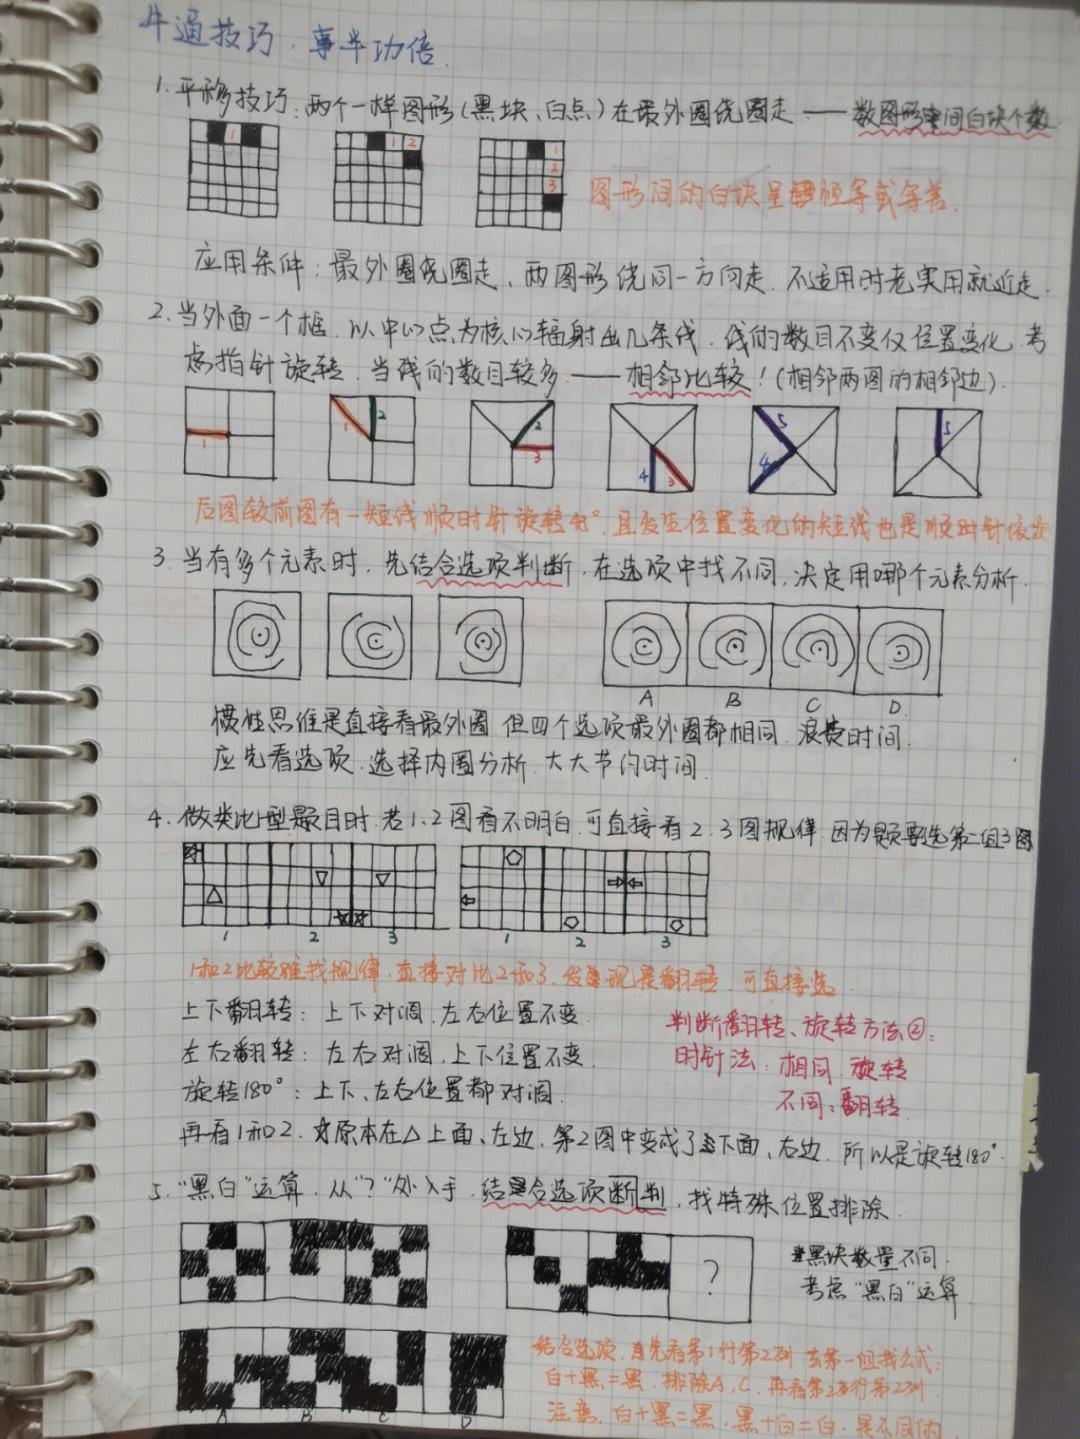 牛逼技巧，事半功倍.
1. 平移技巧：两个一样图形(黑块、白点)在最外圈绕圈走 —— 数图形中间白块个数
1 1 2 1 2 3
图形间的白块呈恒等或等差.
应用条件：最外圈绕圈走、两图形绕同一方向走. 不适用时老实用就近走.
2. 当外面一个框. 以中心点为核心辐射出几条线. 线的数目不变仅位置变化. 考
虑指针旋转. 当线的数目较多. —— 相邻比较！(相邻两图的相邻边).
1 1 2 2 3 4 3 5 4 5
后图较前图有一短线顺时针旋转45°. 且发生位置变化的短线也是顺时针依次
3. 当有多个元素时，先结合选项判断，在选项中找不同，决定用哪个元素分析.
A B C D.
惯性思维是直接看最外圈. 但四个选项最外圈都相同. 浪费时间.
应先看选项. 选择内圈分析. 大大节约时间.
4. 做类比型题目时. 若1、2图看不明白. 可直接看2、3图规律. 因为题要选第二组3图
1 2 3 1 2 3
1和2比较难找规律. 直接对比2和3. 发现是翻转. 可直接选.
上下翻转：上下对调. 左右位置不变.
左右翻转：左右对调. 上下位置不变.
旋转180°：上下、左右位置都对调.
判断翻转、旋转方法②：
时针法：相同. 旋转
不同：翻转.
再看1和2. 原本在△上面、左边. 第2图中变成了下面、右边. 所以是旋转180°.
5. "黑白"运算. 从"?"处入手. 结合选项断判，找特殊位置排除.
?
黑块数量不同.
考虑"黑白"运算
A B C D
结合选项. 先看第1行第2列 去第一组找公式：
白+黑=黑. 排除A、C. 再看第2行第2列.
注意. 白+黑=黑. 黑+白=白. 是不同的.